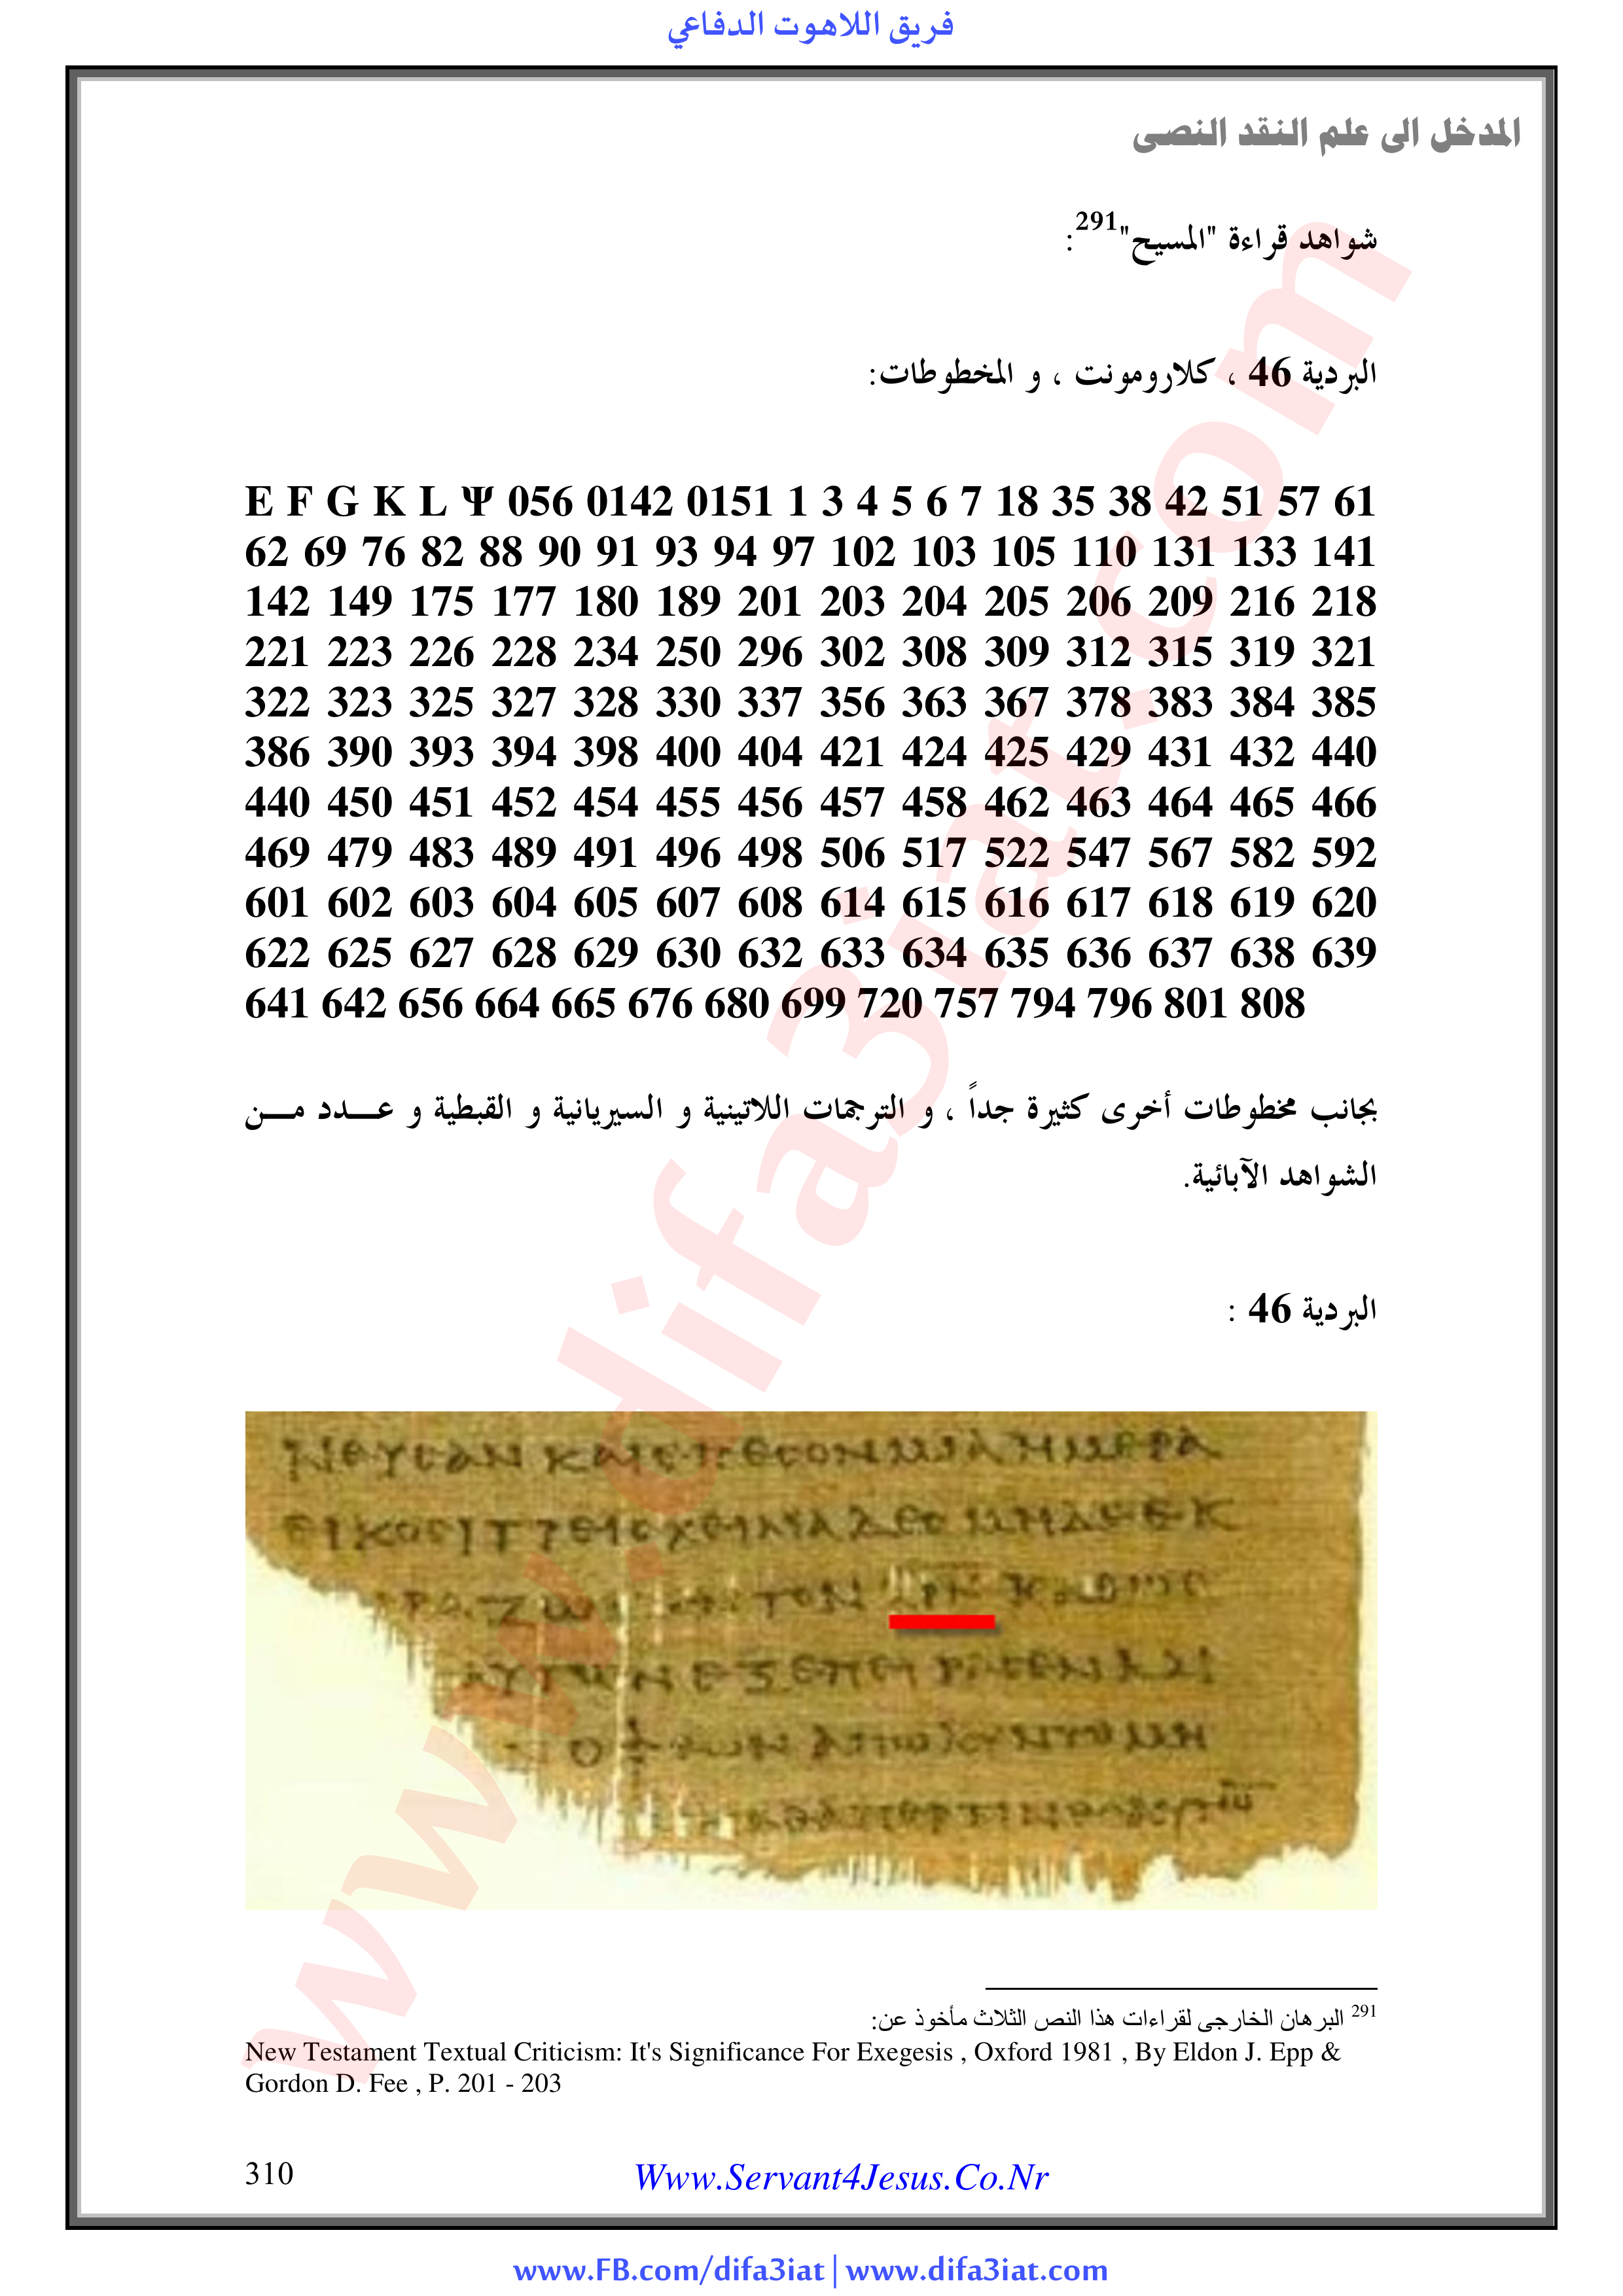 فريق اللاهوت الدفاعي
المدخل الى علم النقد النصى
شواهد قراءة "المسيح"291:
البردية 46 ، كلارومونت ، و المخطوطات:
E F G K L Ψ 056 0142 0151 1 3 4 5 6 7 18 35 38 42 51 57 61
62 69 76 82 88 90 91 93 94 97 102 103 105 110 131 133 141
142 149 175 177 180 189 201 203 204 205 206 209 216 218
221 223 226 228 234 250 296 302 308 309 312 315 319 321
322 323 325 327 328 330 337 356 363 367 378 383 384 385
386 390 393 394 398 400 404 421 424 425 429 431 432 440
440 450 451 452 454 455 456 457 458 462 463 464 465 466
469 479 483 489 491 496 498 506 517 522 547 567 582 592
601 602 603 604 605 607 608 614 615 616 617 618 619 620
622 625 627 628 629 630 632 633 634 635 636 637 638 639
641 642 656 664 665 676 680 699 720 757 794 796 801 808
بجانب مخطوطات أخرى كثيرة جداً ، و الترجمات اللاتينية و السيريانية و القبطية و عـــدد مـــن
الشواهد الآبائية.
البردية 46 :
291 البرهان الخارجى لقراءات هذا النص الثلاث مأخوذ عن:
New Testament Textual Criticism: It's Significance For Exegesis , Oxford 1981 , By Eldon J. Epp &
Gordon D. Fee , P. 201 - 203
310
Www.Servant4Jesus.Co.Nr
www.FB.com/difa3iat | www.difa3iat.com
www.difa3iat.com